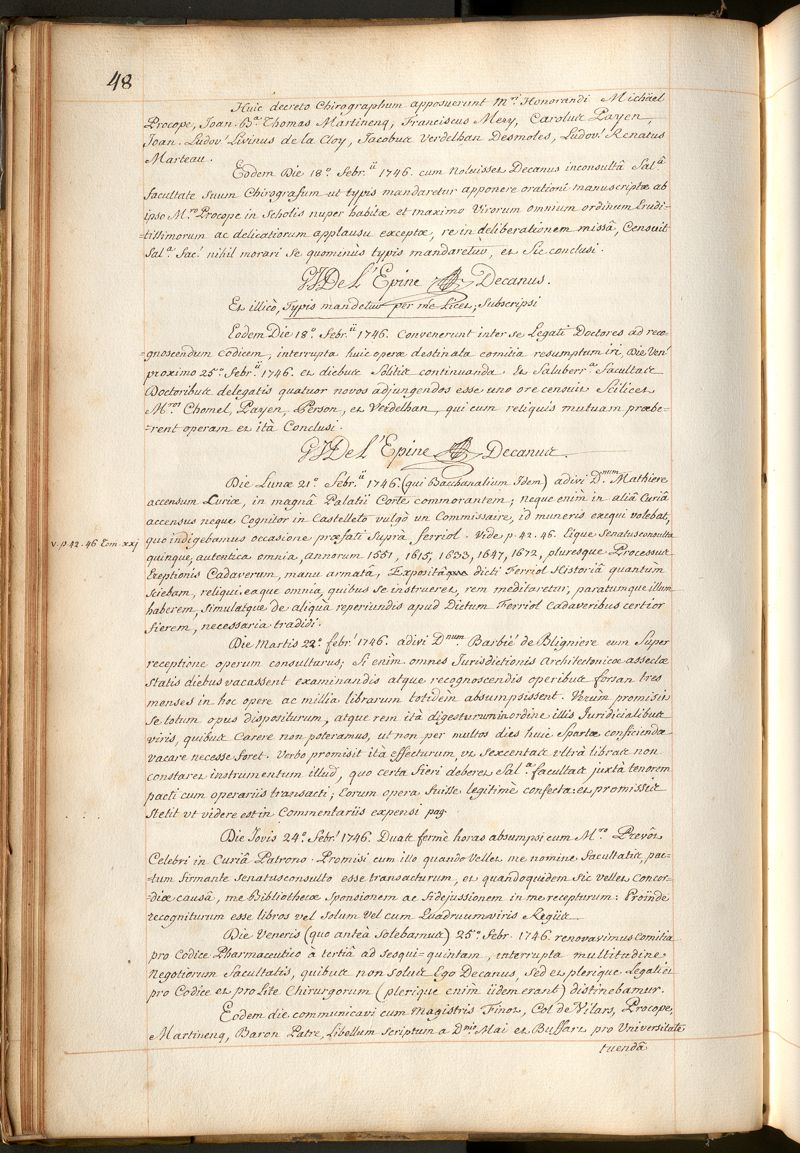 48
Huic decreto Chirographum apposuerunt M.ri Honorandi Michäel
Procope, Joan. B.a Thomas Martinenq, Franciscus Mery, Carolus Payen,
Joan. Ludov.s Livinus de la Cloy, Jacobus Verdelhan Desmoles, Ludov.s Renatus
Marteau.
Eodem Die 18.o Febr.ii 1746. cum Noluisset Decanus inconsultâ Sal.a
facultate suum Chirografum ut typis mandaretur apponere orationi manuscriptæ ab
ipso M.ro Procope in Scholis nuper habitæ et maximo Virorum omnium ordinum Erudi-
=tissimorum ac delicatiorum applausu exceptæ, re in deliberationem missâ, Censuit
Sal.a Fac.s nihil morari se quominùs typis mandaretur, et Sic conclusi.
GJDe L'Epine Decanus.
Et illicò, Typis mandetur per me Licet; Subscripsi
Eodem Die 18.o Febr.ii 1746. Convenerunt inter se Legati Doctores ad reco-
=gnoscendum Codicem, interrupta huic operæ destinata comitia resumptum iri Die Ven.s
proximo 25.o Febr.ii 1746. et diebus Solitis continuanda. Et Saluberr.a Facultas
Doctoribus delegatis quatuor novos adjungendos esse uno ore censuit Scilicet
M.ros Chomel, Payen, Person, et Verdelhan, qui cum reliquis mutuam præbe-
=rent operam et ità Conclusi.
GJDe l'Epine Decanus.
Die Lunæ 21.o Febr.ii 1746. (qui Bacchanalium Idem) adivi D.num Mathiere
accensum Curiæ, in magnâ Palatii Corte commorantem; neque enim in aliâ Curiâ
accensus neque Cognitor in Castelleto vulgò un Commissaire, id muneris exequi volebat,
v. p. 42. 46. Tom. xxj
quo indigebamus occasione præfati Suprà ferriol. Vide p. 42. 46. Eique Senatusconsulta
quinque, autentica omnia, annorum 1551, 1615, 1633, 1647, 1672, pluresque Processus
Ereptionis Cadaverum, manu armatâ, Expositâque dicti Ferriol Historiâ quantùm
sciebam, reliqui. eaque omnia, quibus se instrueret, rem meditaretur, paratumque illum
haberem, simulatque de aliquâ reperiundis apud Dictum Ferriol Cadaveribus certior
fierem, necessaria tradidi.
Die Martis 22.o febr.s 1746. adivi D.num Barbié de Bligniere eum super
receptione operum consulturus; Si enim omnes Jurisdictionis Architectonicæ asseclæ
statis diebus vacassent examinandis atque recognoscendis operibus forsan tres
menses in hoc opere ac millia librarum totidem absumpsissent. Verùm promisit
se totum opus dispositurum, atque rem ità digesturum in ordine illis Juridicialibus
viris, quibus Carere non poteramus, ut non per multos dies huic Spartæ conficiendæ
vacare necesse foret. Verbo promisit ità effecturum, ut sexcentas ultrà libras non
constaret instrumentum illud, quo certa fieri deberet Sal.a facultas juxtà tenorem
pacti cum operariis transacti; Eorum opera fuisse legitimè confecta: et promissis
stetit ut videre est in Commentariis expensi pag.
Die Jovis 24.o Febr.s 1746. Duas fermè horas absumpsi cum M.ro Prevôt
Celebri in Curiâ Patrono. Promisi cum illo quando Vellet me nomine Facultatis, pac-
=tum firmante Senatusconsulto esse transacturum, et quandoquidem Sic vellet Concor-
=diæ causâ, me Bibliothecæ Sponsionem ac fidejussionem in me recepturum: Proïnde
recogniturum esse libros vel solum vel cum Quadrumviris Regiis.
Die Veneris (quo anteà Solebamus) 25.o Febr. 1746. renovavimus Comitia
pro Codice Pharmaceutico à tertiâ ad sesqui-quintam, interrupta multitudine
Negotiorum Facultatis, quibus non solus Ego Decanus, Sed et plerique Legati et
pro Codice et pro Lite Chirurgorum (plerique enim iidem erant) distinebamur.
Eodem die communicavi cum magistris Finot, Col de Vilars, Procope,
Martinenq, Baron Patre, Libellum scriptum a D.nis Mai et Buffart pro Universitate
tuendâ